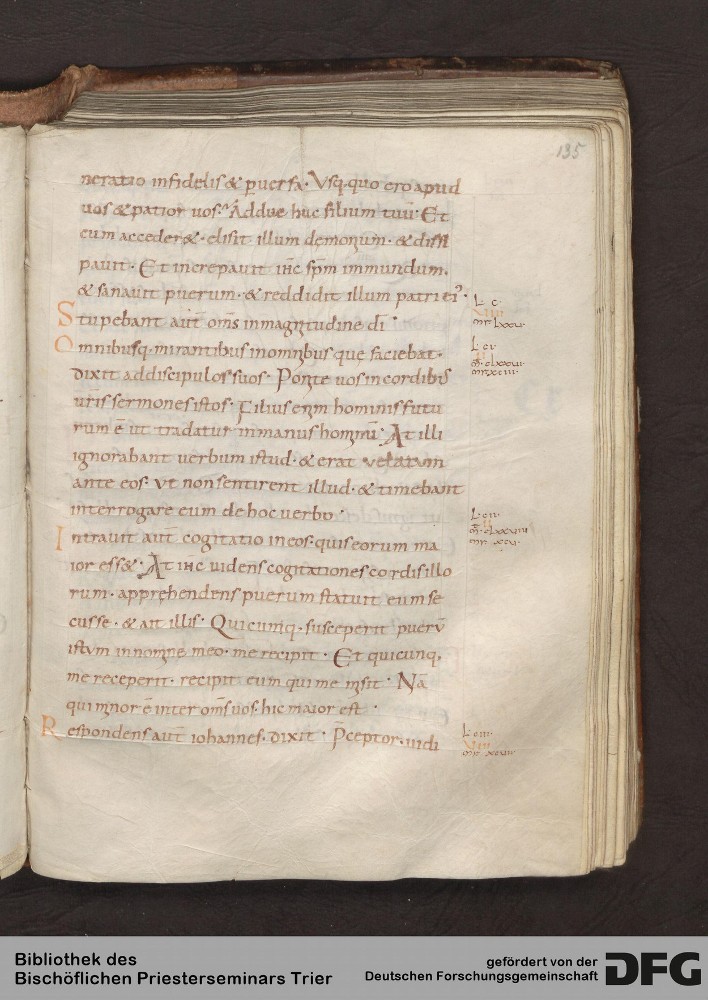 135
neratio infidelis & puersa· Vsq·quo ero apud
uos & patior uos·? Adduc huc filium tuū· Et
cum acceder&·elisit illum demonium·& dissi
pauit· Et increpauit ihc spm immundum·
& sanauit puerum·& reddidit illum patri ei'·
Stupebant aut̄ oms in magnitudine dī·
Omnibusq· mirantibus in omnibus que faciebat·
dixit ad discipulos suos· Ponite uos in cordibus
uris sermones istos· Filius enim hominis futu
rum ē ut tradatur in manus hominū· At illi
ignorabant uerbum istud·& erat uelatum
ante eos· ut non sentirent illud·& timebant
interrogare eum de hoc uerbo·
Intrauit aut̄ cogitatio in eos· quis eorum ma
ior ess&· At ihc uidens cogitationes cordis illo
rum· apprehendens puerum statuit eum se
cusse·& ait illis· Quicumq· susceperit puerū
istum in nomine meo· me recipit· Et quicunq,
me receperit· recipit eum qui me misit· Nā
qui minor ē inter oms uos· hic maior est·
Respondens aut̄ iohannes· dixit· Pceptor· uidi
Bibliothek des
Bischöflichen Priesterseminars Trier
gefördert von der
Deutschen Forschungsgemeinschaft
DFG